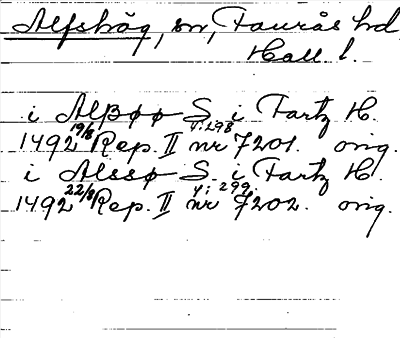 Alfshög, sn, Faurås hd
Hall l.
i Alßøø S. i Fartz H.
1492 19/8 Rep. II nr 7201. orig.
V: 298
i Alssø S. i Fartz H.
1492 22/8 Rep. II nr 7202. orig.
V: 299.